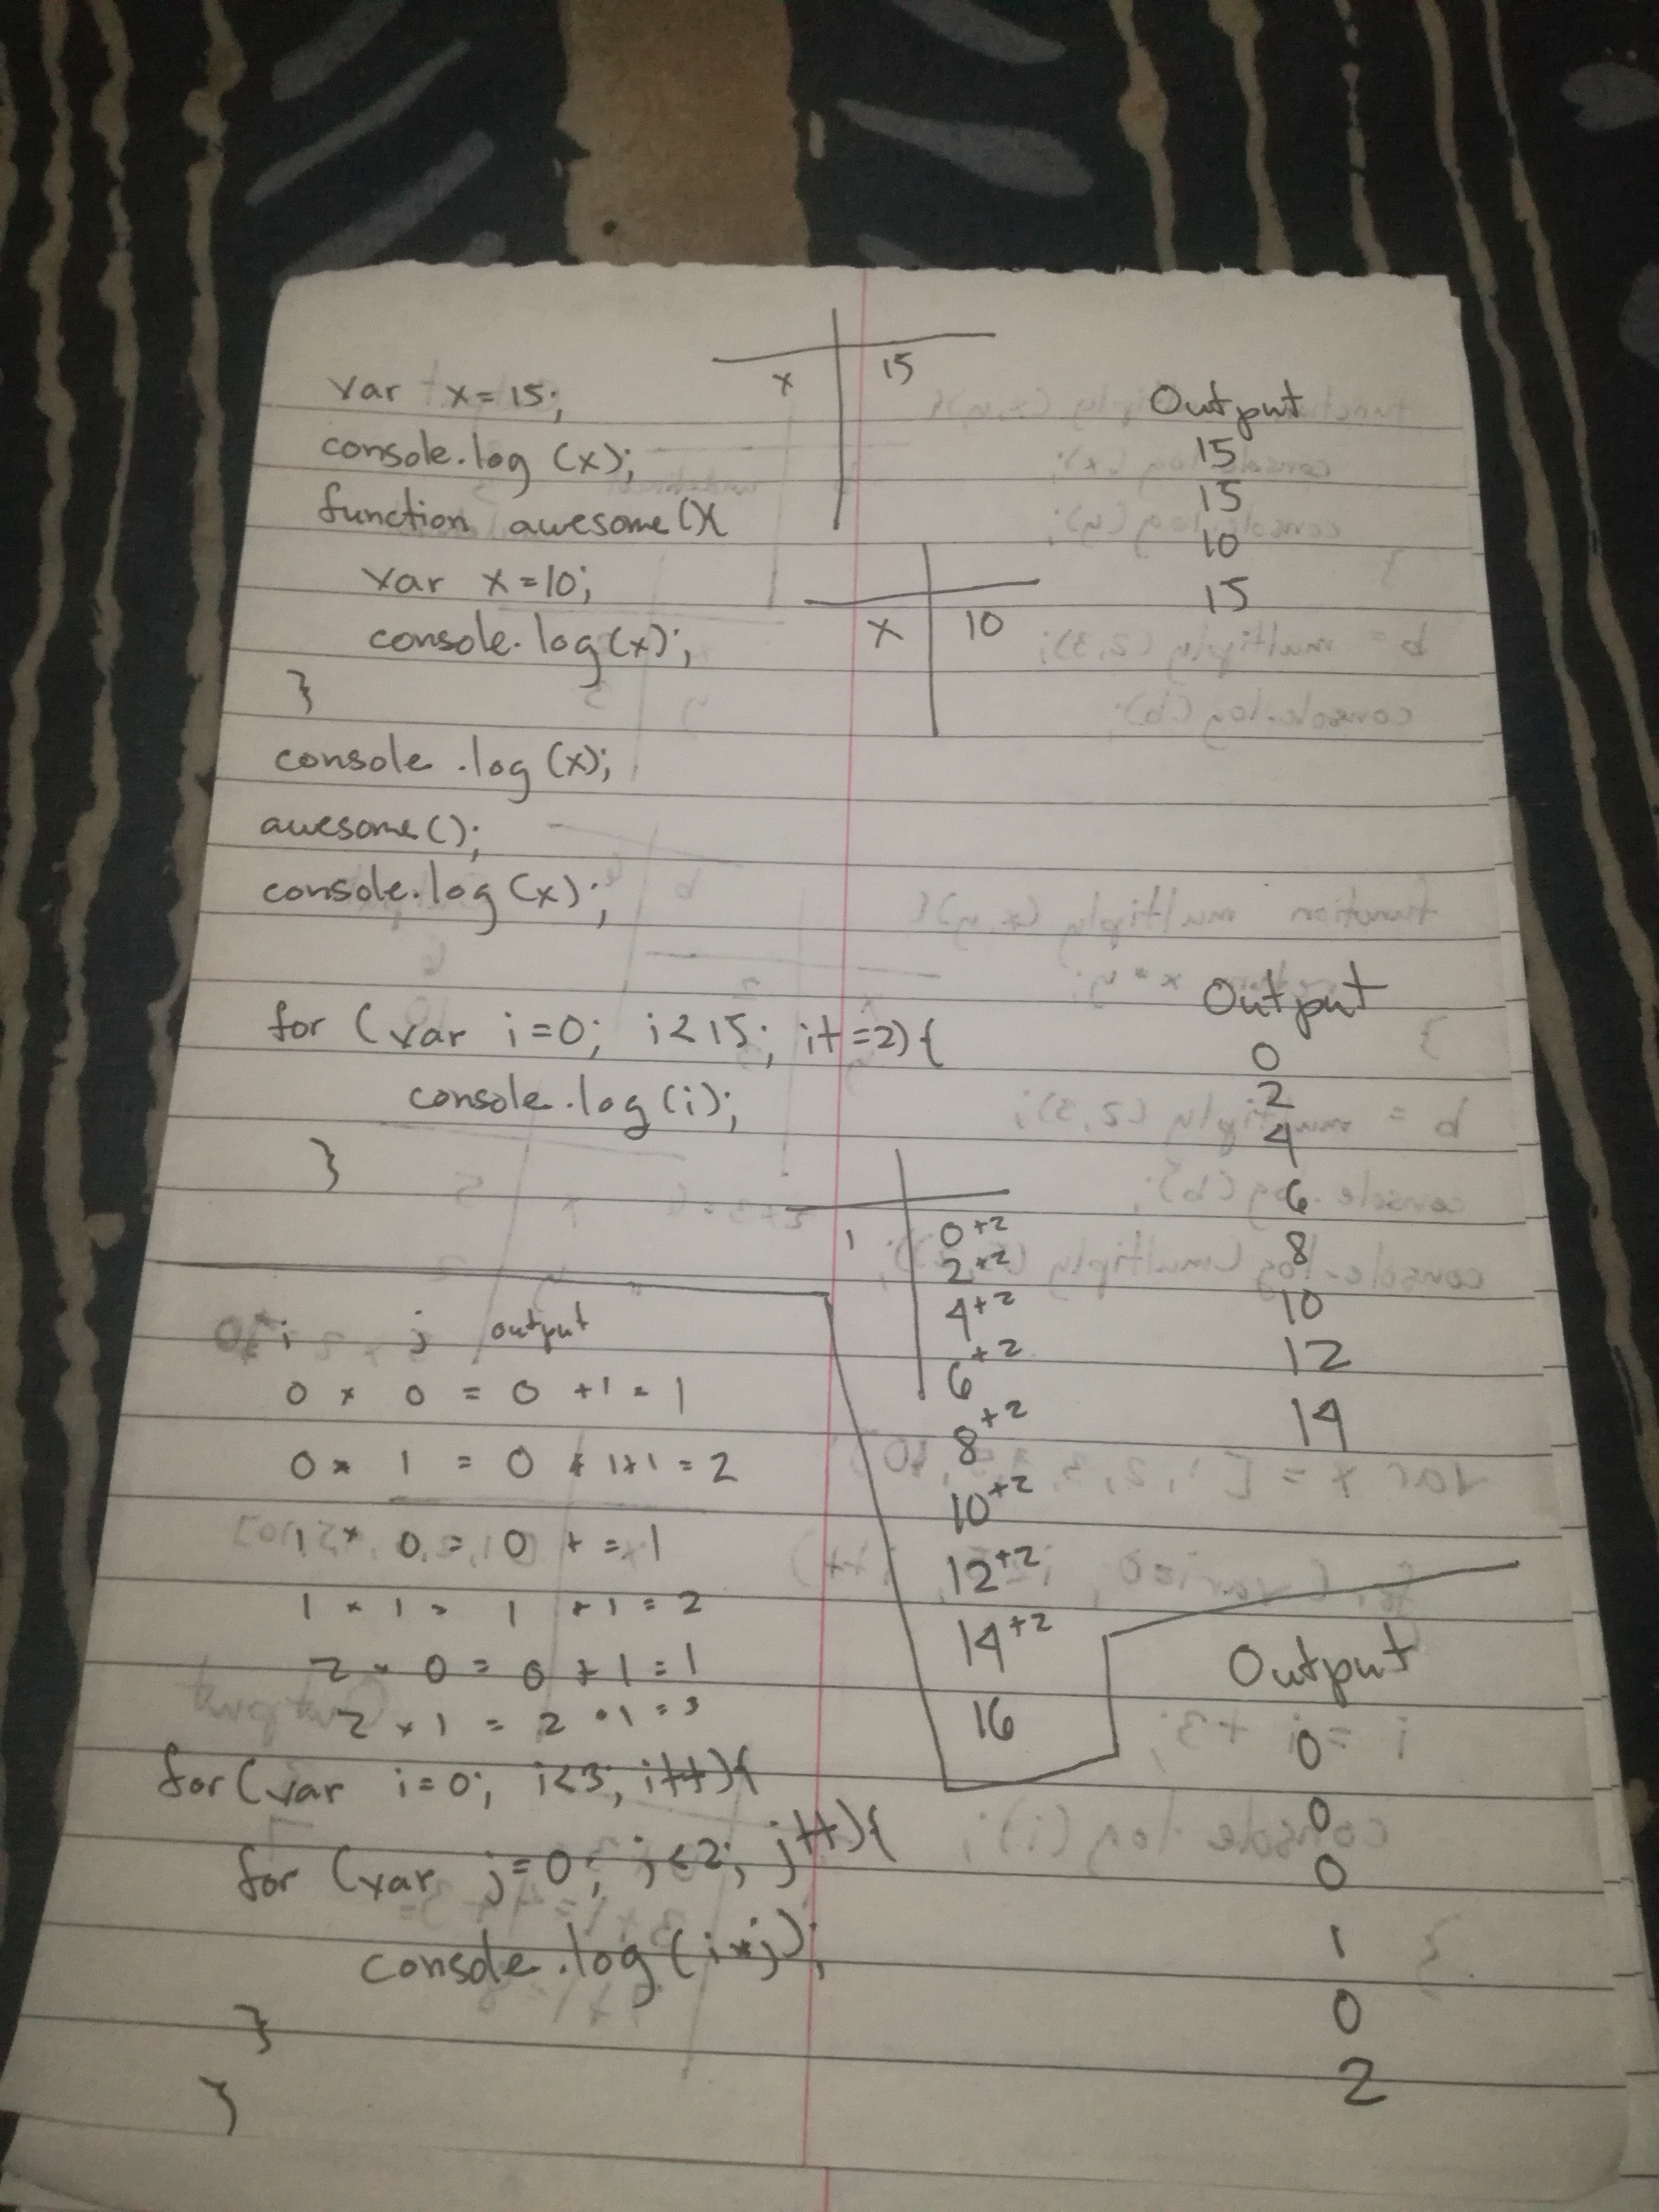 x | 15
var x = 15;
console.log (x);
function awesome(){
var x = 10;
console.log(x);
}
x | 10
console.log (x);
awesome();
console.log (x);
Output
15
15
10
15
for (var i = 0; i < 15; i += 2) {
console.log (i);
}
Output
0
2
4
6
8
10
12
14
i
0 +2
2 +2
4 +2
6 +2
8 +2
10 +2
12 +2
14 +2
16
i j output
0 * 0 = 0 +1 = 1
0 * 1 = 0 + 1+1 = 2
1 * 0 = 0 + = 1
1 * 1 = 1 +1 = 2
2 * 0 = 0 + 1 = 1
2 * 1 = 2 +1 = 3
for (var i = 0; i < 3; i++) {
for (var j = 0; j < 2; j++) {
console.log (i*j);
}
}
Output
0
0
0
1
0
2